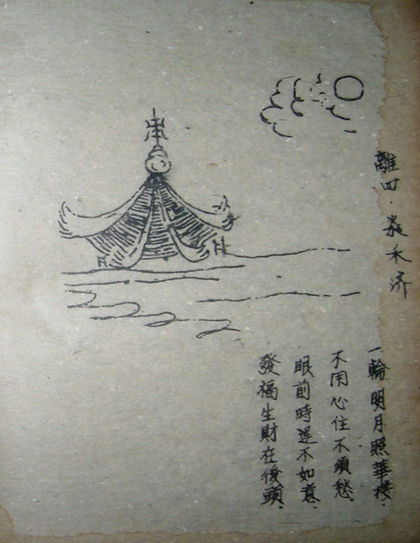 離四.火水未济
一輪明月照華楼.
不用心住不須愁.
眼前時運不如意.
發福生財在後頭.